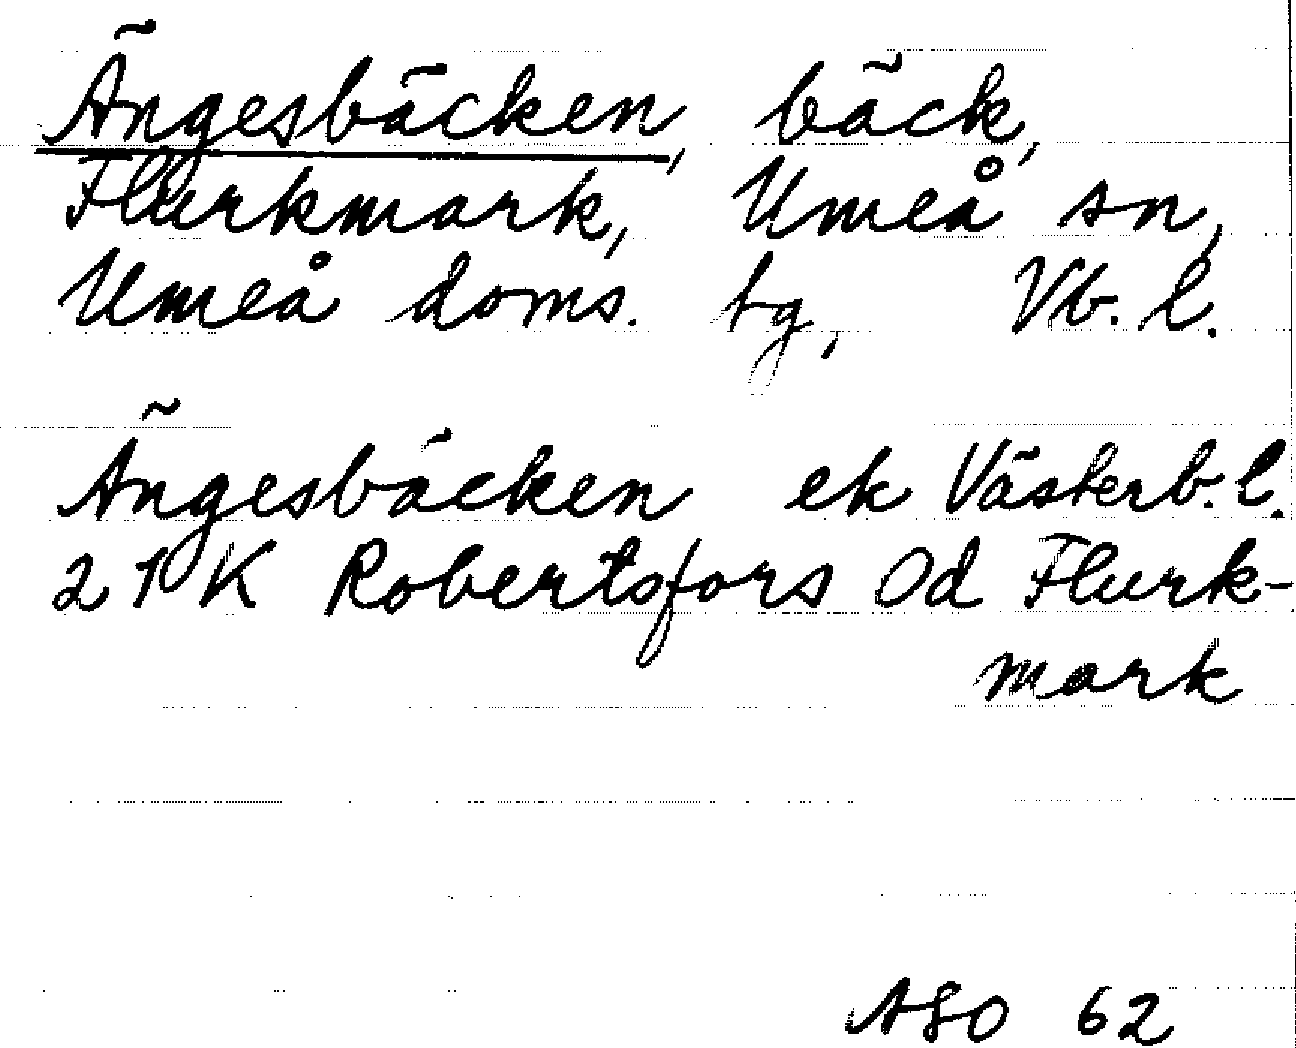 Ängesbäcken, bäck,
Flurkmark, Umeå sn,
Umeå doms. tg, Vb. l.
Ängesbäcken ek Västerb. l.
21 K Robertsfors Od Flurk-
mark
ASO 62